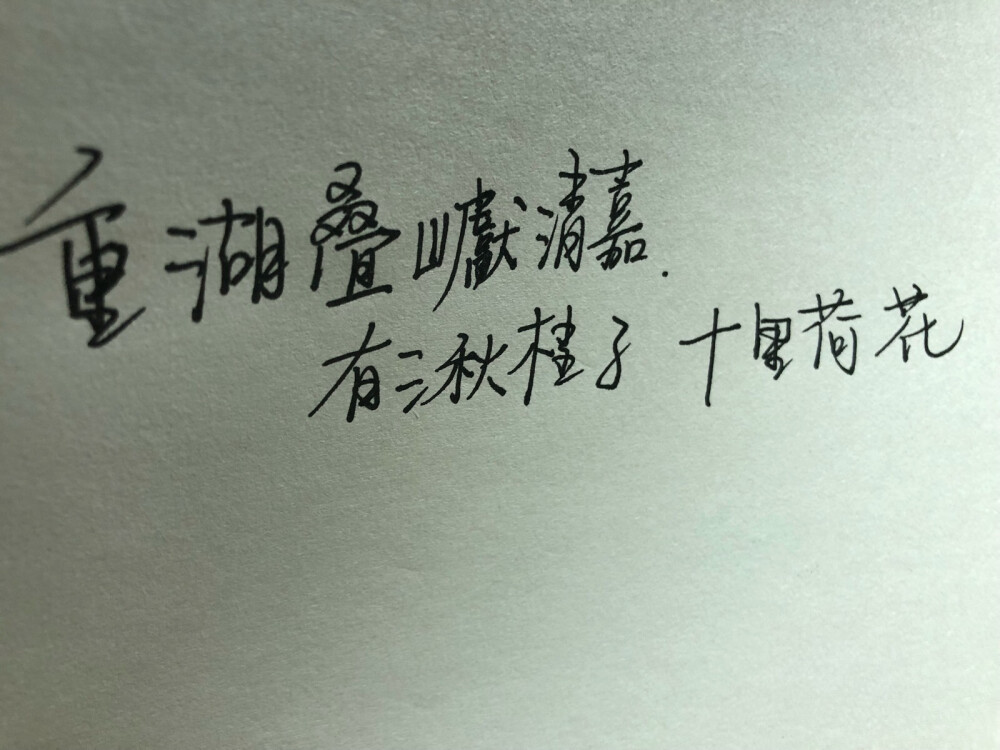 重湖叠巘清嘉.
有三秋桂子 十里荷花